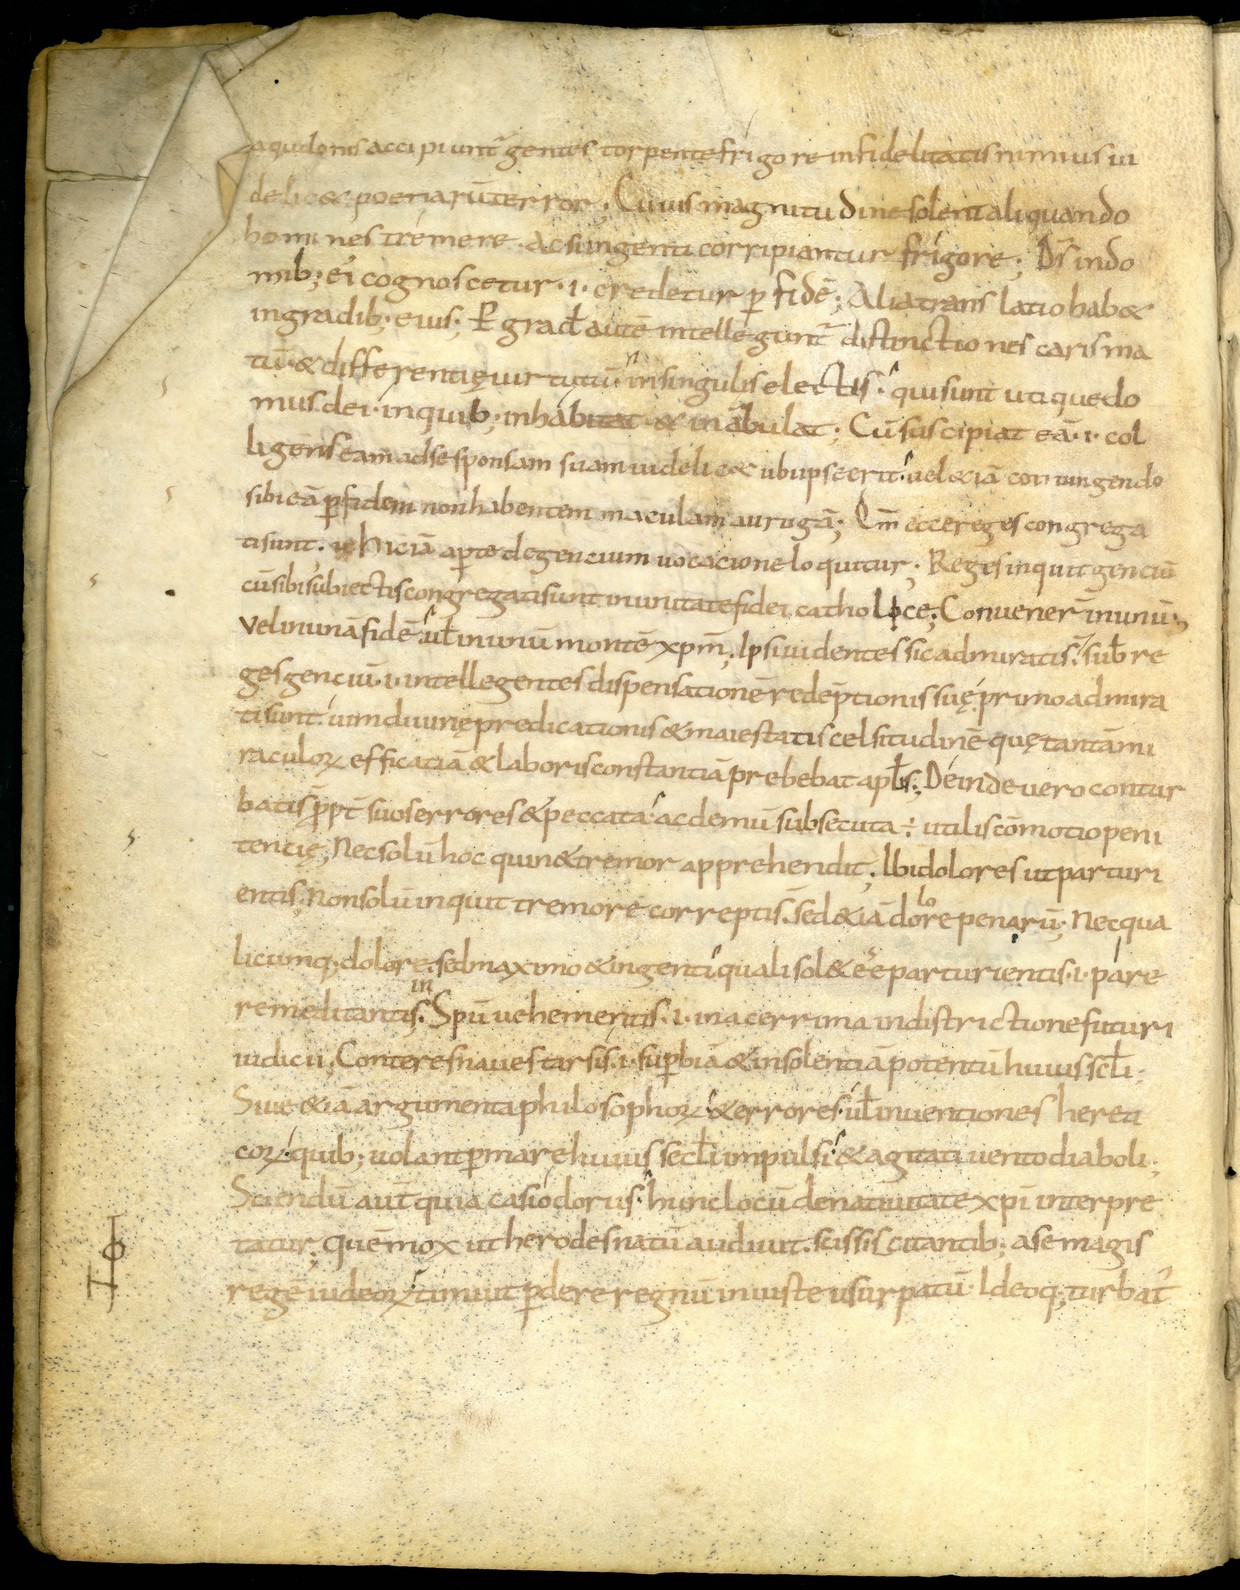 aquilonis accipiunt᷑ gentes torpente frigore infidelitatis nimius ui
delic& poenarū terror; Cuius magnitudine solent aliquando
homines tremere. Ac si ingenti corripiantur frigore; D̄s in do
mib; ei᷑ cognoscetur ·i· credetur ꝑ fidē; Alia translatio hab&
in gradib; eius; Ꝑ grad̄ autē intellegunt᷑ distinctiones carisma
tū & differentię uirtutū in singulis electis. qui sunt utique do
mus dei. in quib; inhabitat & inābulat; Cū suscipiat eā ·i· col
ligens eam ad se sponsam suam uidelic& ubi ipse erit. uel &iā coniungendo
sibi eā ꝑ fidem non habentem maculam aut rugā; Qm̄ ecce reges congrega
ti sunt. Hic iā aperte de gencium uocacione loquitur; Reges inquit genciū
cū sibi subiectis congregati sunt in unitate fidei catholice; Conuener̄ in unū;
Vel in unā fidē ul̄ in unū montē xp̄m; Ipsi uidentes sic admirati s̄. sub̄ re
ges genciū ·i· intellegentes dispensationē redēptionis suę. primo admira
ti sunt. uim diuinę predicationis & maiestatis celsitudinē quę tantā mi
raculoꝝ efficatiā & laboris constantiā prebebat apl̄is; Deinde uero contur
bati s̄ ꝓpt̄ suos errores & peccata. ac demū subsecuta ÷ utilis cōmotio peni
tencię; Nec solū hoc quin & tremor apprehendit; Ibi dolores ut parturi
entis; Non solū inquit tremore correpti s̄. sed &iā dolore penarū; Nec qua
licumq; dolore. sed maximo & ingenti. quali sol& e&#x0305;e parturientis ·i· parere
meditantis. in Sp̄u uehementi s̄. ·i· in acerrima in districtione futuri
iudicii; Conteres naues tarsis ·i· suꝑbiā & insolentiā potentū huius scl̄i.
Siue &iā argumenta philosophoꝝ & errores. ul̄ inuentiones hereti
coꝝ. quib; uolant ꝑ mare huius secl̄i impulsi & agitati uento diaboli;
Sciendū aut̄ quia casiodorus hunc locū de natiuitate xp̄i interpre
tatur; Quē mox ut herodes natū audiuit. scissiscitantib; a se magis
regē iudeoꝝ. timuit ꝑdere regnū iniuste usurpatū. Ideoq; turbat᷑